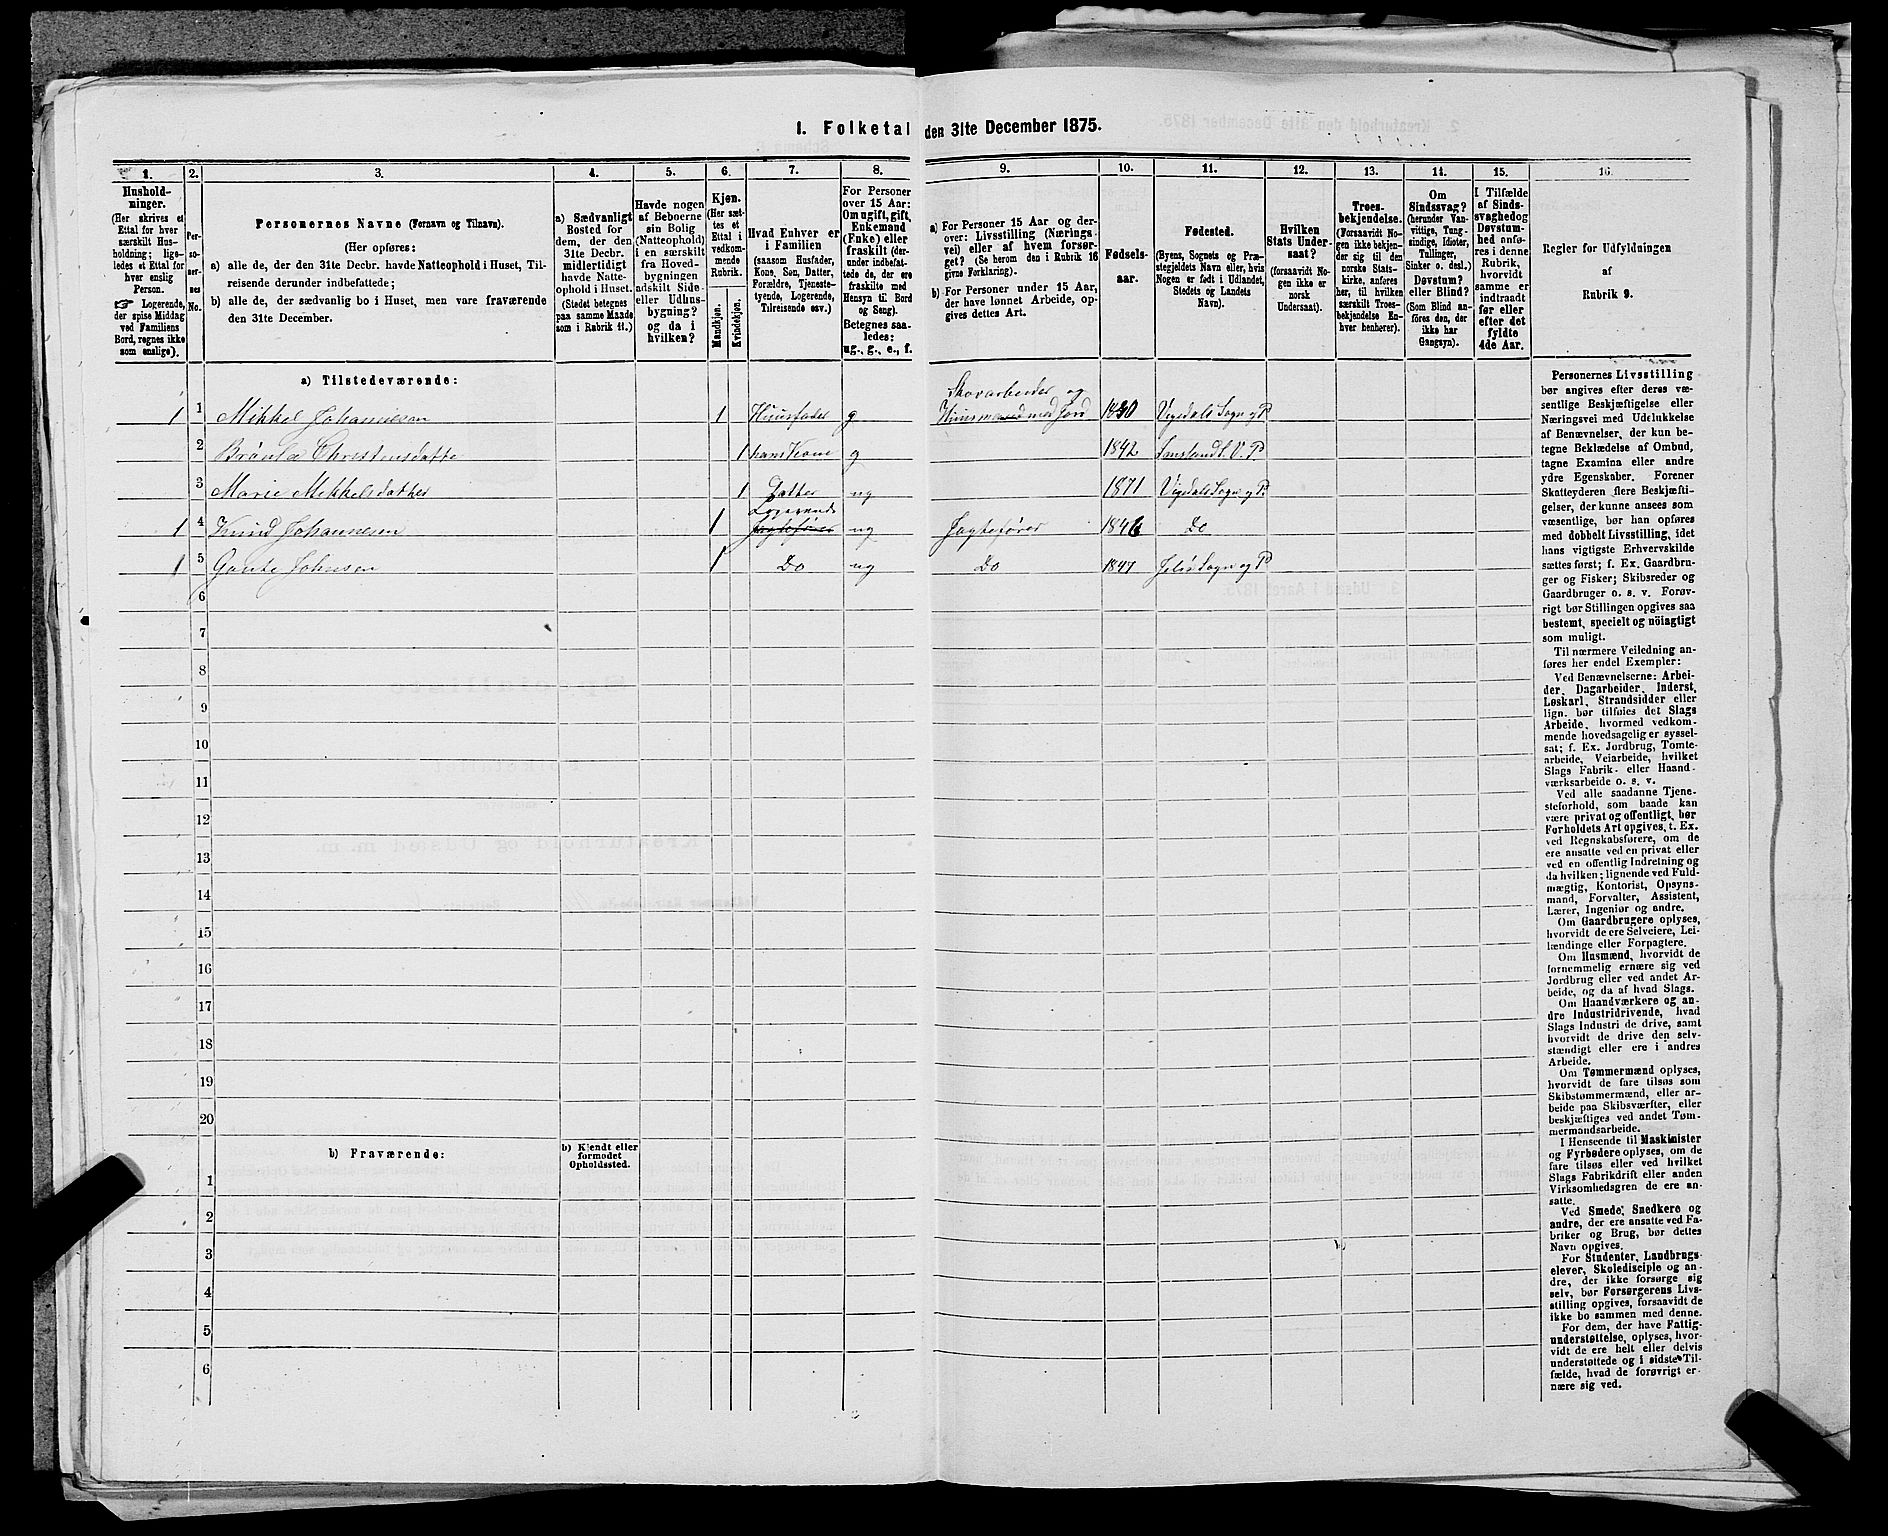 1. Folketal den 31te December 1875.
1.
2.
3.
4.
5.
6.
7.
8.
9.
10.
11.
12.
13.
14.
15.
16.
Hushold-
ninger.
(Her skrives et
Ettal for hver
særskilt Hus-
holdning; lige-
ledes et Ettal for
hver enslig
Person.
☞ Logerende,
der spise Middag
ved Familiens
Bord, regnes ikke
som enslige).
Per-
so-
ner-
nes
No.
Personernes Navne (Fornavn og Tilnavn).
(Her opføres:
a) alle de, der den 31te Decbr. havde Natteophold i Huset, Til-
reisende derunder indbefattede;
b) alle de, der sædvanlig bo i Huset, men vare fraværende
den 31te December.
a) Sædvanligt
Bosted for
dem, der den
31te Decbr.
midlertidigt
havde Natte-
ophold i Huset.
(Stedet betegnes
paa samme Maade
som i Rubrik 11.)
Havde nogen
af Beboerne
sin Bolig
(Natteophold)
i en særskilt
fra Hoved-
bygningen
adskilt Side-
eller Udhus-
bygning?
og da i
hvilken?
Kjøn.
(Her sæt-
tes et
Ettal i
vedkom-
mende
Rubrik.
Mandkjøn.
Kvindekjøn.
Hvad Enhver er
i Familien
(saasom Husfader,
Kone, Søn, Datter,
Forældre, Tjeneste-
tyende, Logerende,
Tilreisende osv.)
For Personer
over 15 Aar:
Om ugift, gift,
Enkemand
(Enke) eller
fraskilt (der-
under indbefat-
tede de, der ere
fraskilte med
Hensyn til Bord
og Seng).
Betegnes saa-
ledes:
ug., g., e., f.
a) For Personer 15 Aar og der-
over: Livsstilling (Nærings-
vei) eller af hvem forsør-
get? (Se herom den i Rubrik 16
givne Forklaring).
b) For Personer under 15 Aar,
der have lønnet Arbeide, op-
gives dettes Art.
Fødsels-
aar.
Fødested.
(Byens, Sognets og Præ-
stegjeldets Navn eller, hvis
Nogen er født i Udlandet,
Stedets og Landets
Navn).
Hvilken
Stats Under-
saat?
(forsaavidt No-
gen ikke er
norsk
Undersaat).
Troes-
bekjendelse.
(Forsaavidt No-
gen ikke bekjen-
der sig til den
norske Stats-
kirke, anføres
her, til hvilken
særskilt Troes-
bekjendelse En-
hver henhører).
Om
Sindssvag?
(herunder Van-
vittige, Tung-
sindige, Idioter,
Tullinger,
Sinker o. desl.)
Døvstum?
eller Blind?
(Som Blind an-
føres den, der
ikke har
Gangsyn).
I Tilfælde
af Sinds-
svaghed og
Døvstum-
hed anfø-
res i denne
Rubrik,
hvorvidt
samme er
indtraadt
før eller
efter det
fyldte
4de Aar.
Regler for Udfyldningen
af
Rubrik 9.
a) Tilstedeværende:
Skovarbeider og
1 1 Mikkel Johannesen 1 Huusfader g Huusmand med Jord 1830 Vegdals Sogn og P
2 Brönla Christensdatte 1 hans Kone g 1842 V. P
3 Marie Mikkelsdatter 1 Datter ug 1871 Vegdals Sogn og P.
Logerende
1 4 Knud Johannesen 1 Jagtefører ug Jagtefører 1846 Do
1 5 Gaute Johnsen 1 Do ug Do 1847 Sogn og P
6
7
8
9
10
11
12
13
14
15
16
17
18
19
20
b) Fraværende:
b) Kjendt eller
formodet
Opholdssted.
1
2
3
4
5
6
Personernes Livsstilling
bør angives efter deres væ-
sentlige Beskjæftigelse eller
Næringsvei med Udelukkelse
af Benævnelser, der kun be-
tegne Beklædelse af Ombud,
tagne Examina eller andre
ydre Egenskaber. Forener
Skatteyderen flere Beskjæfti-
gelser, der kunne ansees som
væsentlige, bør han opføres
med dobbelt Livsstilling, idet
hans vigtigste Erhvervskilde
sættes først; f. Ex. Gaardbru-
ger og Fisker; Skibsreder og
Gaardbruger o. s. v. Forøv-
rigt bør Stillingen opgives saa
bestemt, specielt og nöiagtigt
som muligt.
Til nærmere Veiledning an-
føres her endel Exempler:
Ved Benævnelserne: Arbei-
der, Dagarbeider, Inderst,
Løskarl, Strandsidder eller
lign. bør tilføies det Slags
Arbeide, hvormed vedkom-
mende hovedsagelig er syssel-
sat; f. Ex. Jordbrug, Tomte-
arbeide, Veiarbeide, hvilket
Slags Fabrik- eller Haand-
værksarbeide o. s. v.
Ved alle saadanne Tjene-
steforhold, som baade kan
være privat og offentligt, bør
Forholdets Art opgives, t. Ex.
ved Regnskabsførere, om de
ere ansatte ved en privat eller
ved en offentlig Indretning og
da hvilken; lignende ved Fuld-
mægtig, Kontorist, Opsyns-
mand, Forvalter, Assistent,
Lærer, Ingeniør og andre.
Om Gaardbrugere oplyses,
hvorvidt de ere Selveiere, Lei-
lændinge eller Forpagtere.
Om Husmænd, hvorvidt de
fornemmelig ernære sig ved
Jordbrug eller ved andet Ar-
beide, og da af hvad Slags.
Om Haandværkere og an-
dre Industridrivende, hvad
Slags Industri de drive, samt
hvorvidt de drive den selv-
stændigt eller ere i andres
Arbeide.
Om Tømmermænd oplyses,
hvorvidt de fare tilsøs som
Skibstømmermænd, eller ar-
beide paa Skibsværfter, eller
beskjæftiges ved andet Tøm-
mermandsarbeide.
I Henseende til Maskinister
og Fyrbødere oplyses, om de
fare tilsøs eller ved hvilket
Slags Fabrikdrift eller anden
Virksomhedsgren de ere an-
satte.
Ved Smede, Snedkere og
andre, der ere ansatte ved Fa-
briker og Brug, bør dettes
Navn opgives.
For Studenter, Landbrugs-
elever, Skoledisciple og an-
dre, der ikke forsørge sig
selv, bør Forsørgerens Livs-
stilling opgives, forsaavidt de
ikke bo sammen med denne.
For dem, der have Fattig-
understøttelse, oplyses, hvor-
vidt de ere helt eller delvis
understøttede og i sidste Til-
fælde, hvad de forøvrigt er-
nære sig ved.